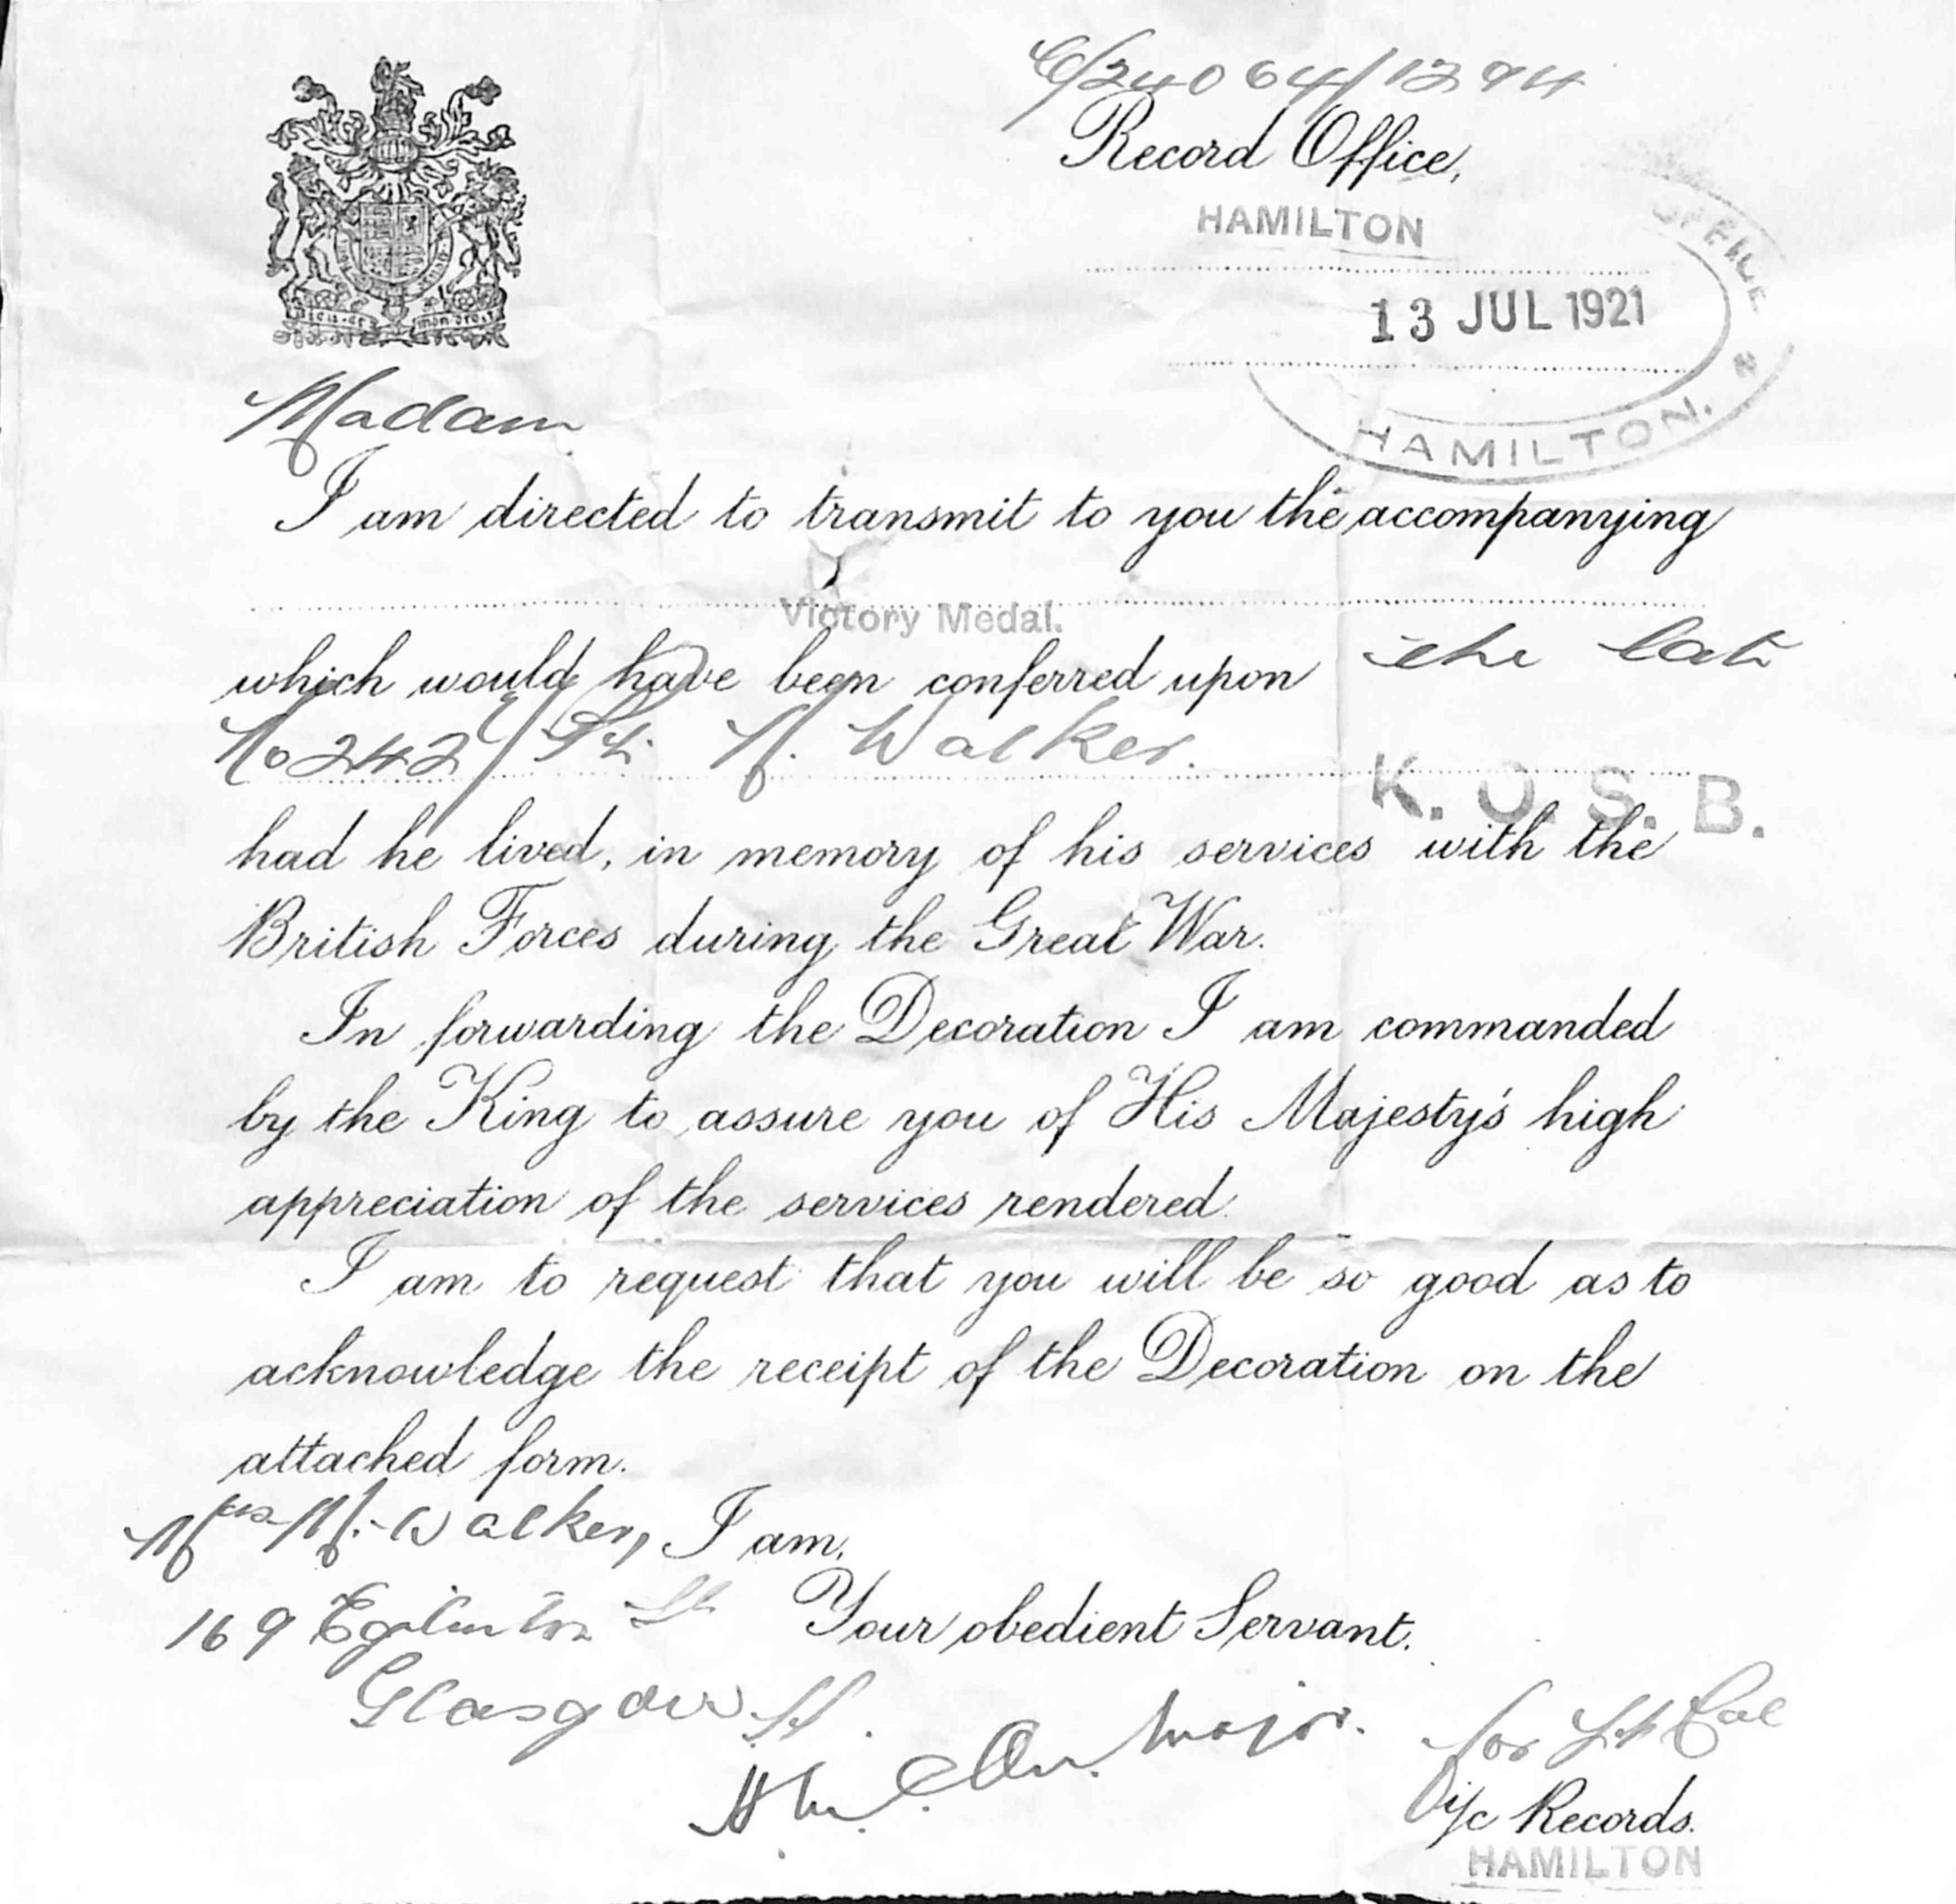 C/24064/1294
Record Office,
HAMILTON
OFFICE
13 JUL 1921
HAMILTON.
Madam
I am directed to transmit to you the accompanying
Victory Medal.
which would have been conferred upon the late
No Walker.
K. O. S. B.
had he lived, in memory of his services with the
British Forces during the Great War.
In forwarding the Decoration I am commanded
by the King to assure you of His Majesty's high
appreciation of the services rendered.
I am to request that you will be so good as to
acknowledge the receipt of the Decoration on the
attached form.
Mrs M. Walker, I am,
169 Eglinton St Your obedient Servant.
Glasgow
Major. for Lt Col
i/c Records.
HAMILTON